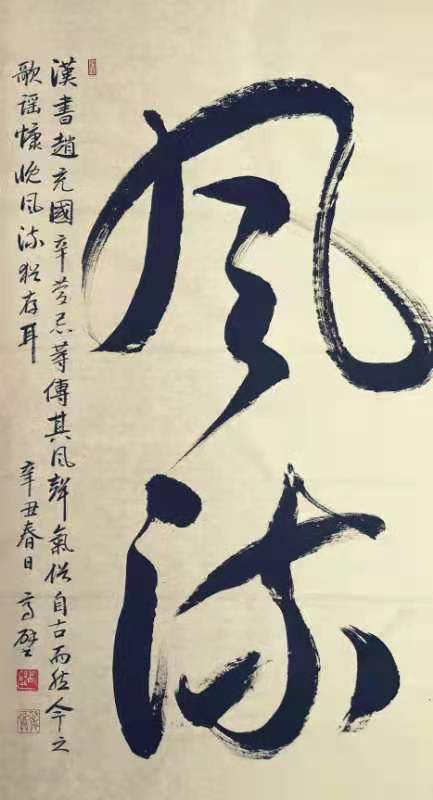 風流
漢書趙充國辛慶忌等傳其風聲氣俗自古而然今之
歌謠慷慨風流猶存耳
辛丑春日